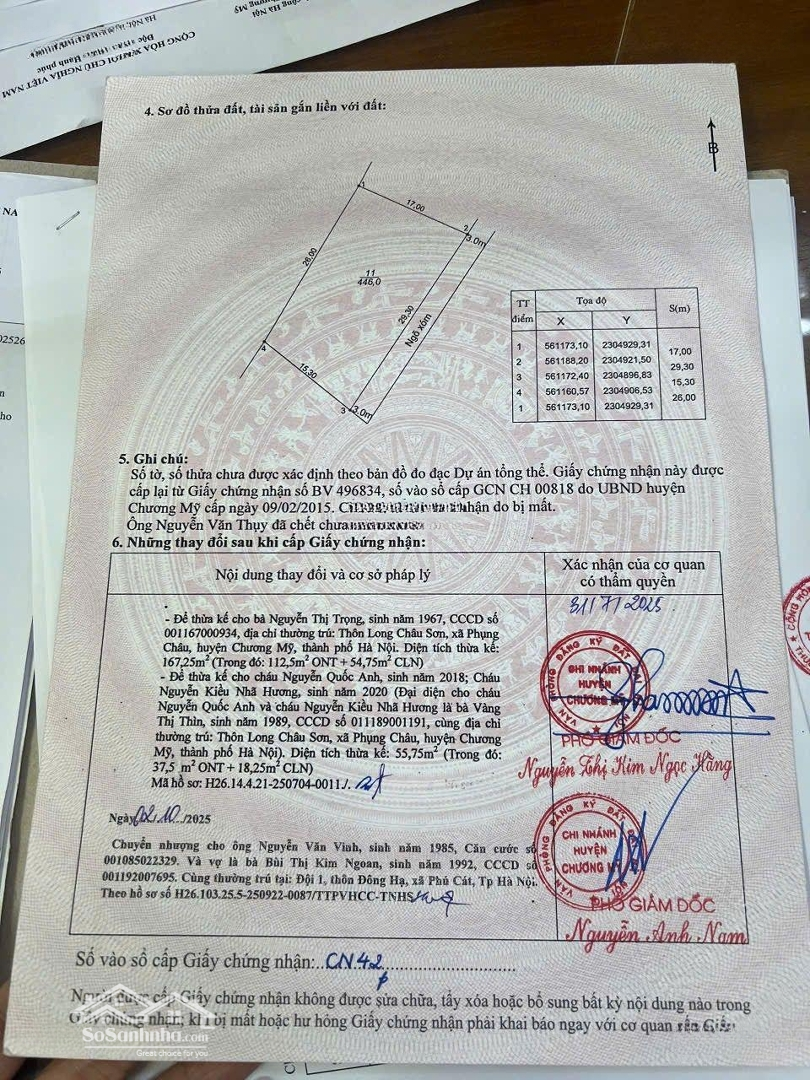 CỘNG HÒA XÃ HỘI CHỦ NGHĨA VIỆT NAM
Hà Nội,
4. Sơ đồ thửa đất, tài sản gắn liền với đất:
B
1
17,00
2
3.0m
26,00
11
446,0
29,30
Ngõ xóm
4
15,30
3
3.0m
TT điểm
Tọa độ
S(m)
X
Y
1 561173,10 2304929,31
17,00
2 561188,20 2304921,50
29,30
3 561172,40 2304896,83
15,30
4 561160,57 2304906,53
26,00
1 561173,10 2304929,31
5. Ghi chú:
Số tờ, số thửa chưa được xác định theo bản đồ đo đạc Dự án tổng thể. Giấy chứng nhận này được
cấp lại từ Giấy chứng nhận số BV 496834, số vào sổ cấp GCN CH 00818 do UBND huyện
Chương Mỹ cấp ngày 09/02/2015. nhận do bị mất.
Ông Nguyễn Văn Thụy đã chết
6. Những thay đổi sau khi cấp Giấy chứng nhận:
Nội dung thay đổi và cơ sở pháp lý
Xác nhận của cơ quan
có thẩm quyền
31/7/2025
- Để thừa kế cho bà Nguyễn Thị Trọng, sinh năm 1967, CCCD số
001167000934, địa chỉ thường trú: Thôn Long Châu Sơn, xã Phụng
Châu, huyện Chương Mỹ, thành phố Hà Nội. Diện tích thừa kế:
167,25m² (Trong đó: 112,5m² ONT + 54,75m² CLN)
- Để thừa kế cho cháu Nguyễn Quốc Anh, sinh năm 2018; Cháu
Nguyễn Kiều Nhã Hương, sinh năm 2020 (Đại diện cho cháu
Nguyễn Quốc Anh và cháu Nguyễn Kiều Nhã Hương là bà Vàng
Thị Thìn, sinh năm 1989, CCCD số 011189001191, cùng địa chỉ
thường trú: Thôn Long Châu Sơn, xã Phụng Châu, huyện Chương
Mỹ, thành phố Hà Nội). Diện tích thừa kế: 55,75m² (Trong đó:
37,5 m² ONT + 18,25m² CLN)
Mã hồ sơ: H26.14.4.21-250704-0011./.
VĂN PHÒNG ĐĂNG KÝ ĐẤT ĐAI
CHI NHÁNH
HUYỆN
CHƯƠNG MỸ
PHÓ GIÁM ĐỐC
Nguyễn Thị Kim Ngọc Hằng
Ngày 02.10/2025
Chuyển nhượng cho ông Nguyễn Văn Vinh, sinh năm 1985, Căn cước số
001085022329. Và vợ là bà Bùi Thị Kim Ngoan, sinh năm 1992, CCCD số
001192007695. Cùng thường trú tại: Đội 1, thôn Đông Hạ, xã Phú Cát, Tp Hà Nội.
Theo hồ sơ số H26.103.25.5-250922-0087/TTPVHCC-TNHS
VĂN PHÒNG ĐĂNG KÝ ĐẤT
CHI NHÁNH
HUYỆN
CHƯƠNG MỸ
PHÓ GIÁM ĐỐC
Nguyễn Anh Nam
Số vào sổ cấp Giấy chứng nhận: CN42
Người được cấp Giấy chứng nhận không được sửa chữa, tẩy xóa hoặc bổ sung bất kỳ nội dung nào trong
Giấy chứng nhận; khi bị mất hoặc hư hỏng Giấy chứng nhận phải khai báo ngay với cơ quan
SoSanhnha.com
Great choice for you